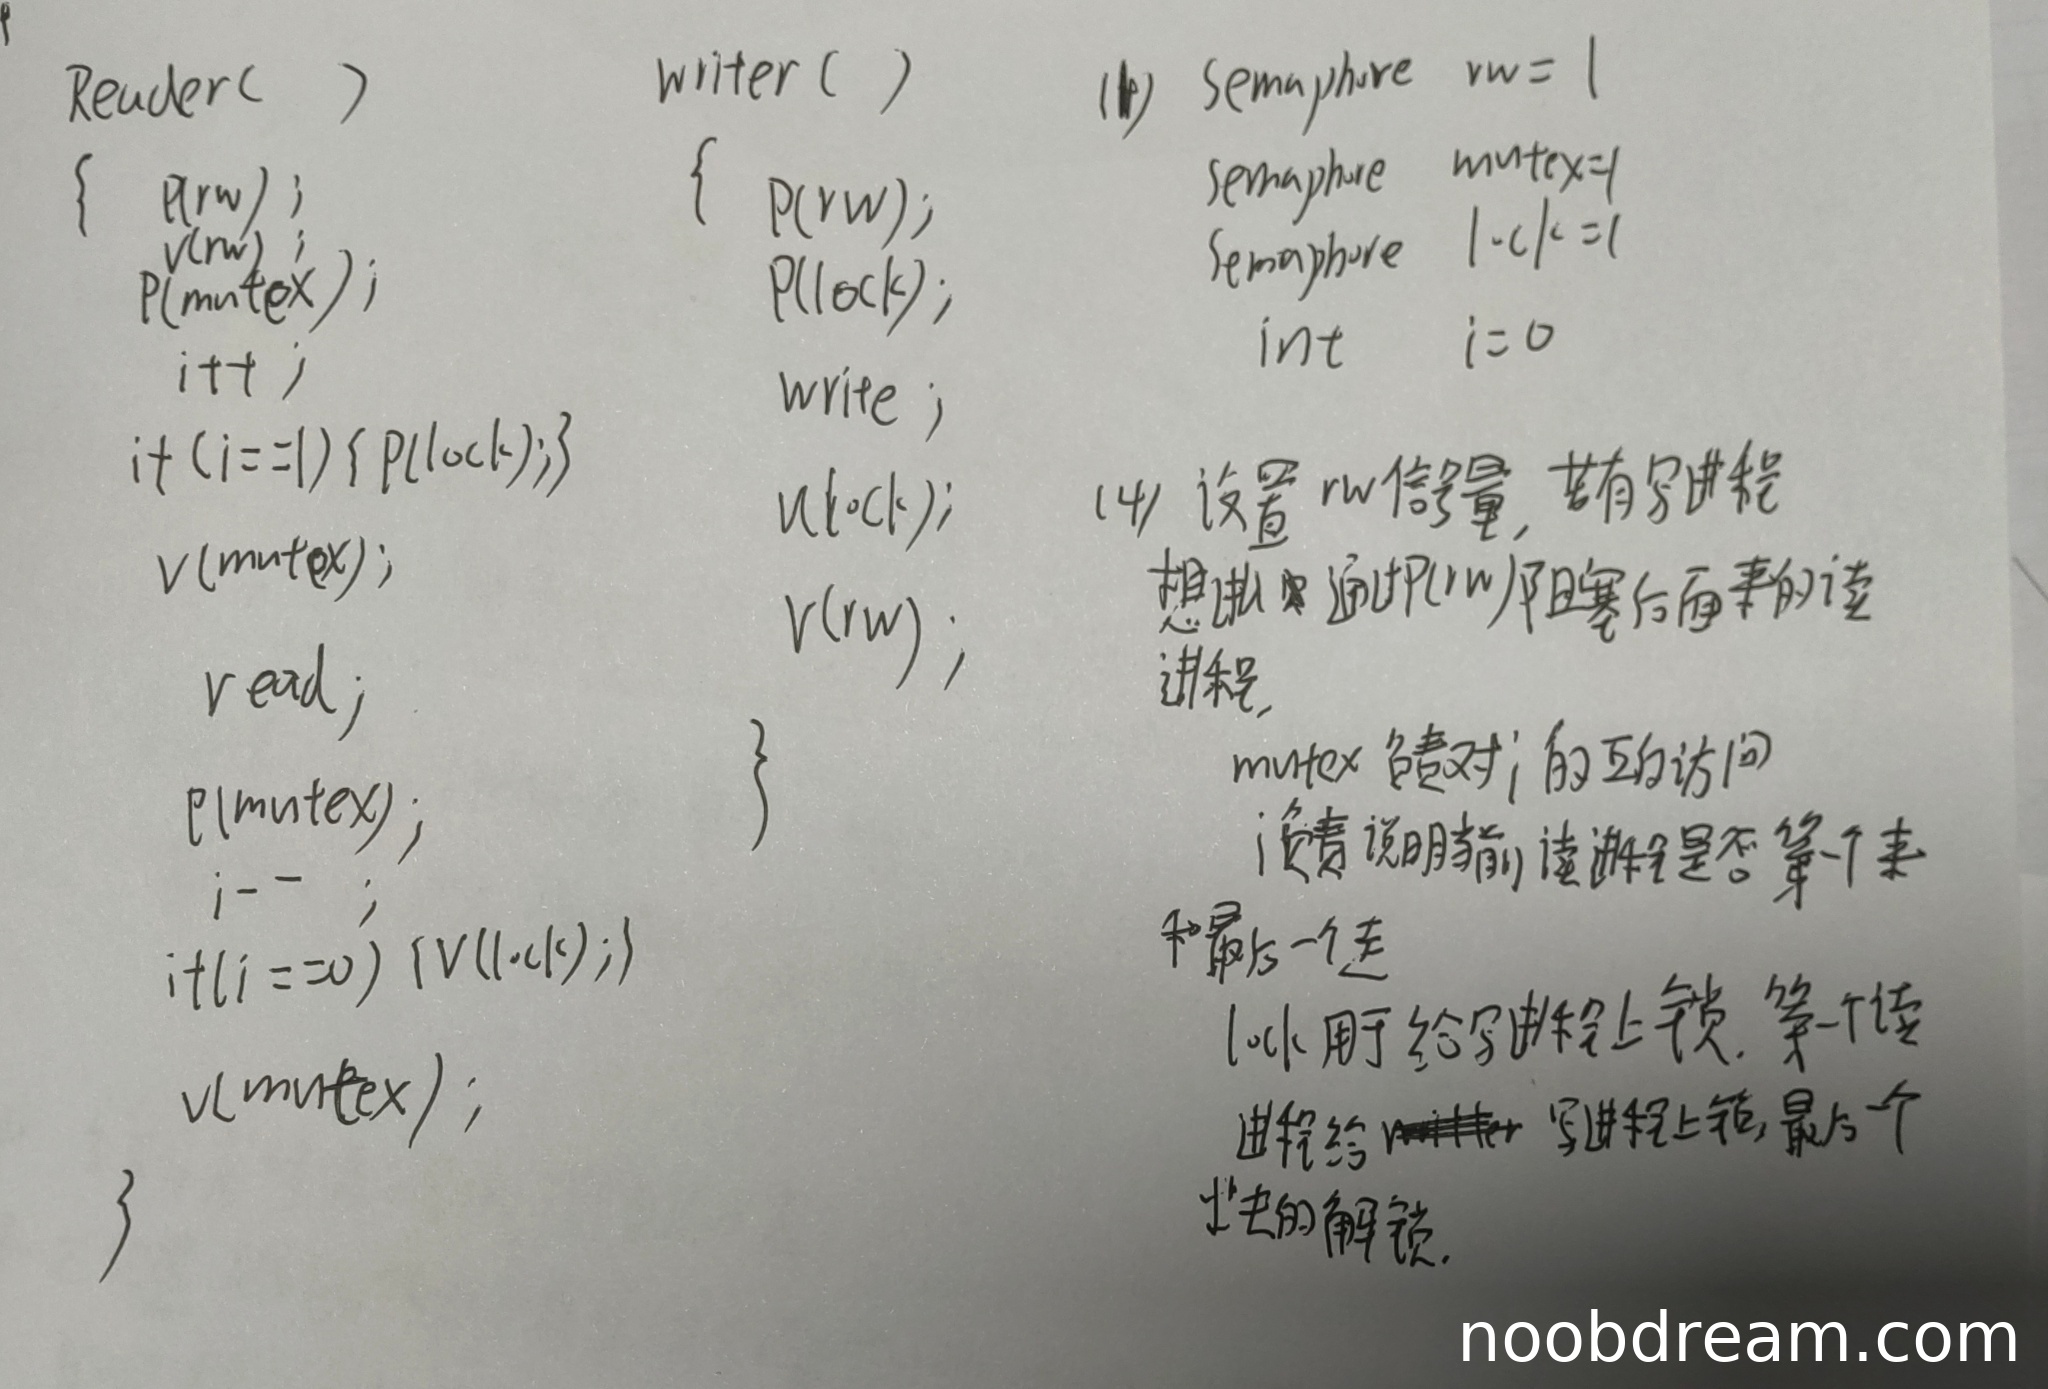 Reader( )
{ P(rw);
V(rw);
P(mutex);
i++;
if(i==1){P(lock);}
V(mutex);
read;
P(mutex);
i--;
if(i==0){V(lock);}
V(mutex);
}
writer( )
{ P(rw);
P(lock);
write;
V(lock);
V(rw);
}
(1) semaphore rw=1
semaphore mutex=1
semaphore lock=1
int i=0
(4) 设置rw信号量,若有写进程
想进 通过P(rw)阻塞后面来的读
进程,
mutex负责对i的互斥访问
i负责说明当前读进程是否第一个来
和最后一个走
lock用于给写进程上锁.第一个读
进程给 写进程上锁,最后一个
出去的解锁.
noobdream.com